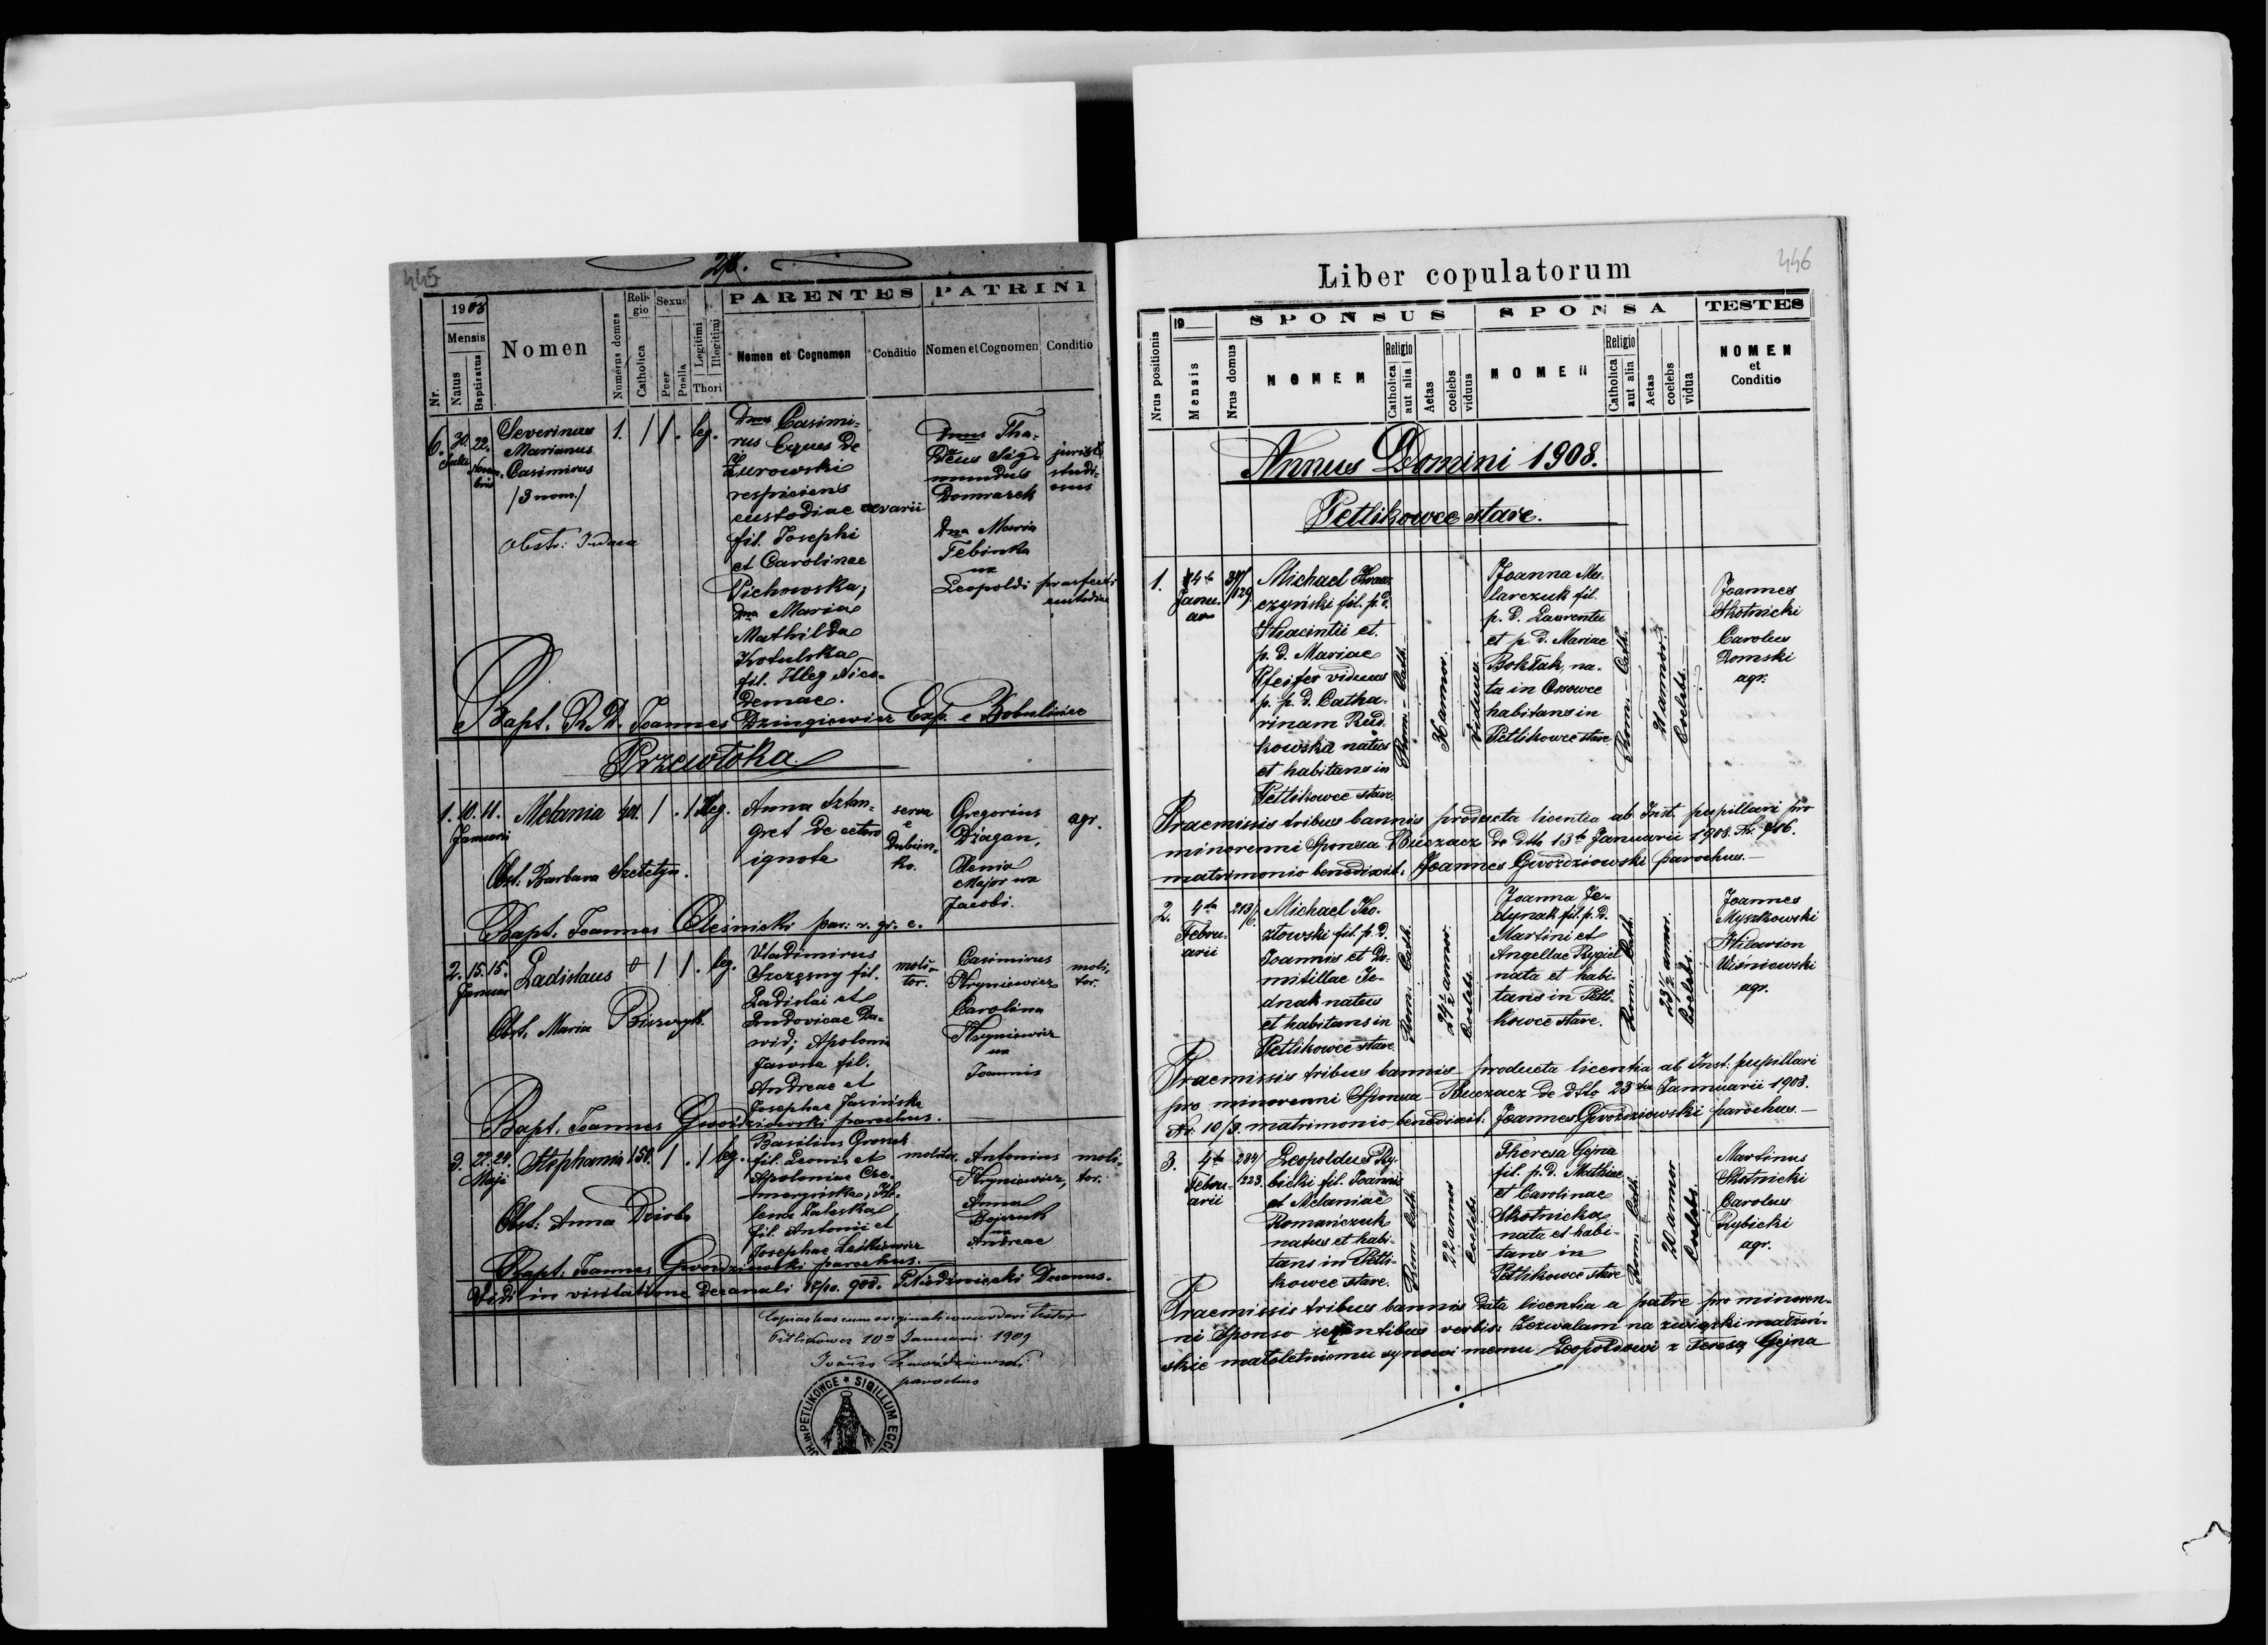 445
28.
1908
Mensis
Nr.
Natus
Baptisatus
Nomen
Numerus domus
Reli-
gio
Catholica
Sexus
Puer
Puella
Legitimi
Illegitimi
Thori
PARENTES
Nomen et Cognomen
Conditio
PATRINI
Nomen et Cognomen
Conditio
6. 30. 22. Severinus 1. / / . leg.
Julii Novem-
bris
Marianus
Casimirus
/3 nom./
Obstr:
Dnus Casimi-
rus Eques de
Żurowski
respiciens
custodiae aerarii
fil. Josephi
et Carolinae
Pichowska;
Dna Maria
Mathilda
Kotulska
fil. Illeg Nico-
demae.
Dnus Tha-
dĕus Sig-
mundus
juris
studi-
osus
Dna Maria
Tebinka
ux
Leopoldi praefecti
custodiae
Bapt. R. D. Joannes Dzingiewicz Exp. e Bobulińce
Przewłoka.
1. 10. 11. Melania / . / Illeg.
Januarii
Anna Sztan-
gret de cetero
ignota
serva
e
Dubien-
ko.
Gregorius
Dżagan,
Xenia
Major ux
Jacobi.
agr.
Obst: Barbara
Bapt. Joannes Oleśnicki par: r. gr. c.
2. 15. 15. Ladislaus / / . leg.
Januar
Obst. Maria
Vladimirus
Szczęsny fil.
Ladislai et
Ludovicae Da-
wid; Apolonia
Jawna fil.
Andreae et
Josephae Jasińska
moli-
tor.
Casimirus
Hryniewicz
Carolina
Hryniewicz
ux
Joannis
moli-
tor.
Bapt. Joannes Gwoździowski parochus.
3. 22. 24. Stephania 150. / . / leg.
Maji
Obst: Anna Dziob
Basilius Gronek
fil. Leonis et
Apoloniae Cze-
moryńska; He-
lena Zaleska
fil. Antonii et
Josephae Leśkiewicz
molitor.
Antonius
Hryniewicz,
Anna
Bojczuk
ux
Andreae
moli-
tor.
Bapt: Joannes Gwoździowski parochus.
Vidi in visitatione decanali Decanus.
Copias has cum originali concordari testor
Petlikowce 10a Januarii 1909
Joannes Gwoździowski
parochus
IN PETLIKOWCE * SIGILLUM ECCL
446
Liber copulatorum
Nrus positionis
19
Mensis
Nrus domus
SPONSUS
NOMEN
Religio
Catholica
aut alia
Aetas
coelebs
viduus
SPONSA
NOMEN
Religio
Catholica
aut alia
Aetas
coelebs
vidua
TESTES
NOMEN
et
Conditio
Annus Domini 1908.
Petlikowce stare.
1.
4ta
Janu-
ar
37/
129.
Michael Kraw-
czyński fil. p. d.
Hyacintii et
p. d. Mariae
Pfeifer viduus
p. p. d. Catha-
rinam Rud-
kowska natus
et habitans in
Petlikowce stare.
Rom. - Cath.
36 annor.
Viduus
Joanna Mu-
larczuk fil.
p. d. Laurentii
et p. d. Mariae
Boktak, na-
ta in Ossowce
habitans in
Petlikowce stare
Rom. - Cath.
21 annor.
Coelebs.
Joannes
Skotnicki
Carolus
Domski
agr.
Praemissis tribus bannis producta licentia ab Inst. pupillari pro
minorenni Sponsa Buczacz de dtto 13te Januarii 1908. Nr. 916.
matrimonio benedixit. Joannes Gwoździowski parochus. —
2.
4ta
Febru-
arii
213/
6.
Michael Ko-
złowski fil. p. d.
Joannis et Do-
mitillae Je-
dnak natus
et habitans in
Petlikowce stare.
Rom. Cath.
24½ annor.
Coelebs.
Joanna Je-
dynak fil. p. d.
Martini et
Angellae Rygiel
nata et habi-
tans in Petli-
kowce stare.
Rom. - Cath.
23½ annor.
Coelebs.
Joannes
Myszkowski
Hilarion
Wiśniowski
agr.
Praemissis tribus bannis producta licentia ab Inst. pupillari
pro minorenni Sponsa Buczacz de dtto 23tia Januarii 1908.
Nr. 10/3. matrimonio benedixit. Joannes Gwoździowski parochus. —
3.
4ta
Febru-
arii
284/
223.
Leopoldus Ry-
bicki fil. Joannis
et Melaniae
Romańczuk
natus et habi-
tans in Petli-
kowce stare.
Rom. Cath.
22 annor
Coelebs.
Theresa Gejna
fil. p. d. Mathiae
et Carolinae
Skotnicka
nata et habi-
tans in
Petlikowce stare
Rom. - Cath.
20 annor
Coelebs.
Martinus
Skotnicki
Carolus
Rybicki
agr.
Praemissis tribus bannis data licentia a patre pro minoren-
ni Sponso sequentibus verbis: Zezwalam na związki małżeń-
skie małoletniemu synowi memu Leopoldowi z Teresą Gejna